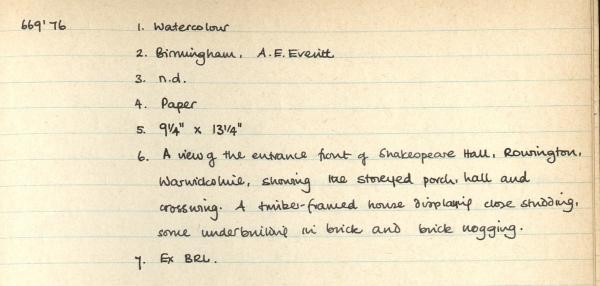 669'76 1. Watercolour
2. Birmingham, A.E. Everitt
3. n.d.
4. Paper
5. 9¼" x 13¼"
6. A view of the entrance front of Shakespeare Hall, Rowington,
Warwickshire, showing the storeyed porch, hall and
crosswing. A timber-framed house displaying close studding,
some underbuilding in brick and brick nogging.
7. Ex BRL.